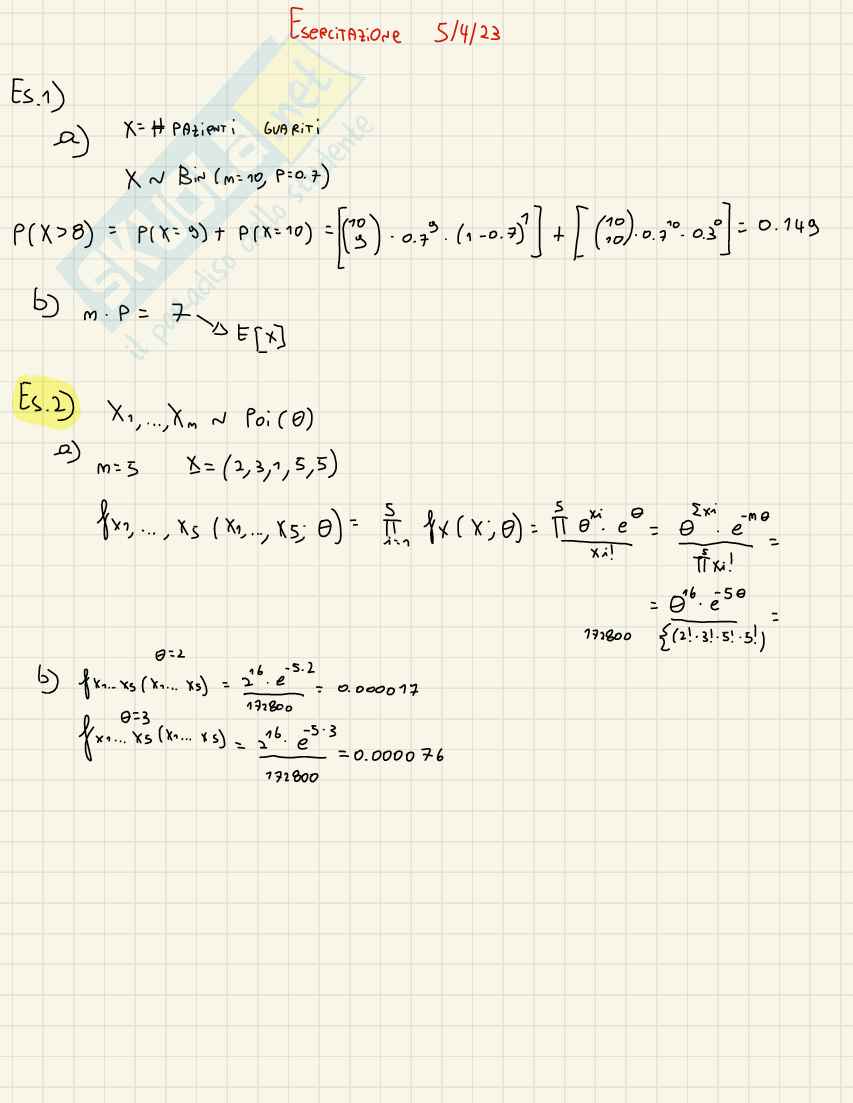 ESERCITAZIONE 5/4/23
Es.1)
a) X = # PAZIENTI GUARITI
X ~ BIN (m=10, P=0.7)
P(X>8) = P(X=9) + P(X=10) = [(10 9) · 0.7⁹ · (1-0.7)¹] + [(10 10) · 0.7¹⁰ · 0.3⁰] = 0.149
b) m · P = 7 → E[X]
Es.2) X₁, ..., Xm ~ Poi(θ)
a) m=5 X = (2,3,1,5,5)
fx₁, ..., x₅ (x₁, ..., x₅; θ) = ∏⁵ᵢ₌₁ fx(x; θ) = ∏⁵ θ^xi · e^θ / xi! = θ^Σxi · e^-mθ / ∏⁵ xi! =
= θ¹⁶ · e^-5θ / {(2! · 3! · 5! · 5!) =
172800
θ=2
b) fx₁...x₅ (x₁... x₅) = 2¹⁶ · e^-5·2 / 172800 = 0.000017
θ=3
fx₁...x₅ (x₁... x₅) = 2¹⁶ · e^-5·3 / 172800 = 0.000076
SKUOLA.net
il paradiso dello studente